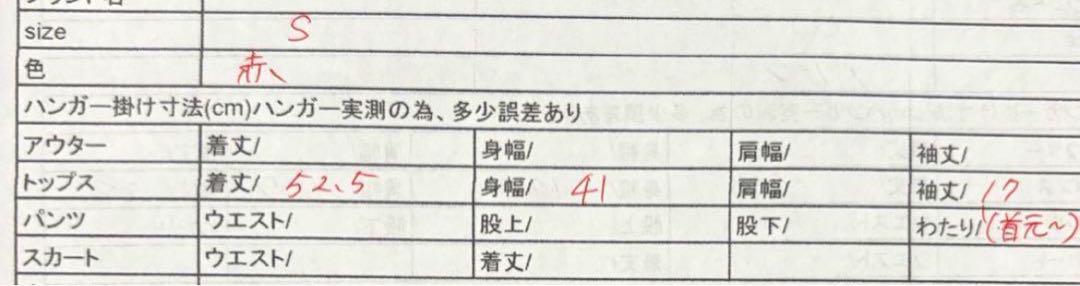 size S
色 赤、
ハンガー掛け寸法(cm)ハンガー実測の為、多少誤差あり
アウター 着丈/ 身幅/ 肩幅/ 袖丈/
トップス 着丈/ 52.5 身幅/ 41 肩幅/ 袖丈/ 17
パンツ ウエスト/ 股上/ 股下/ わたり/ (首元~)
スカート ウエスト/ 着丈/